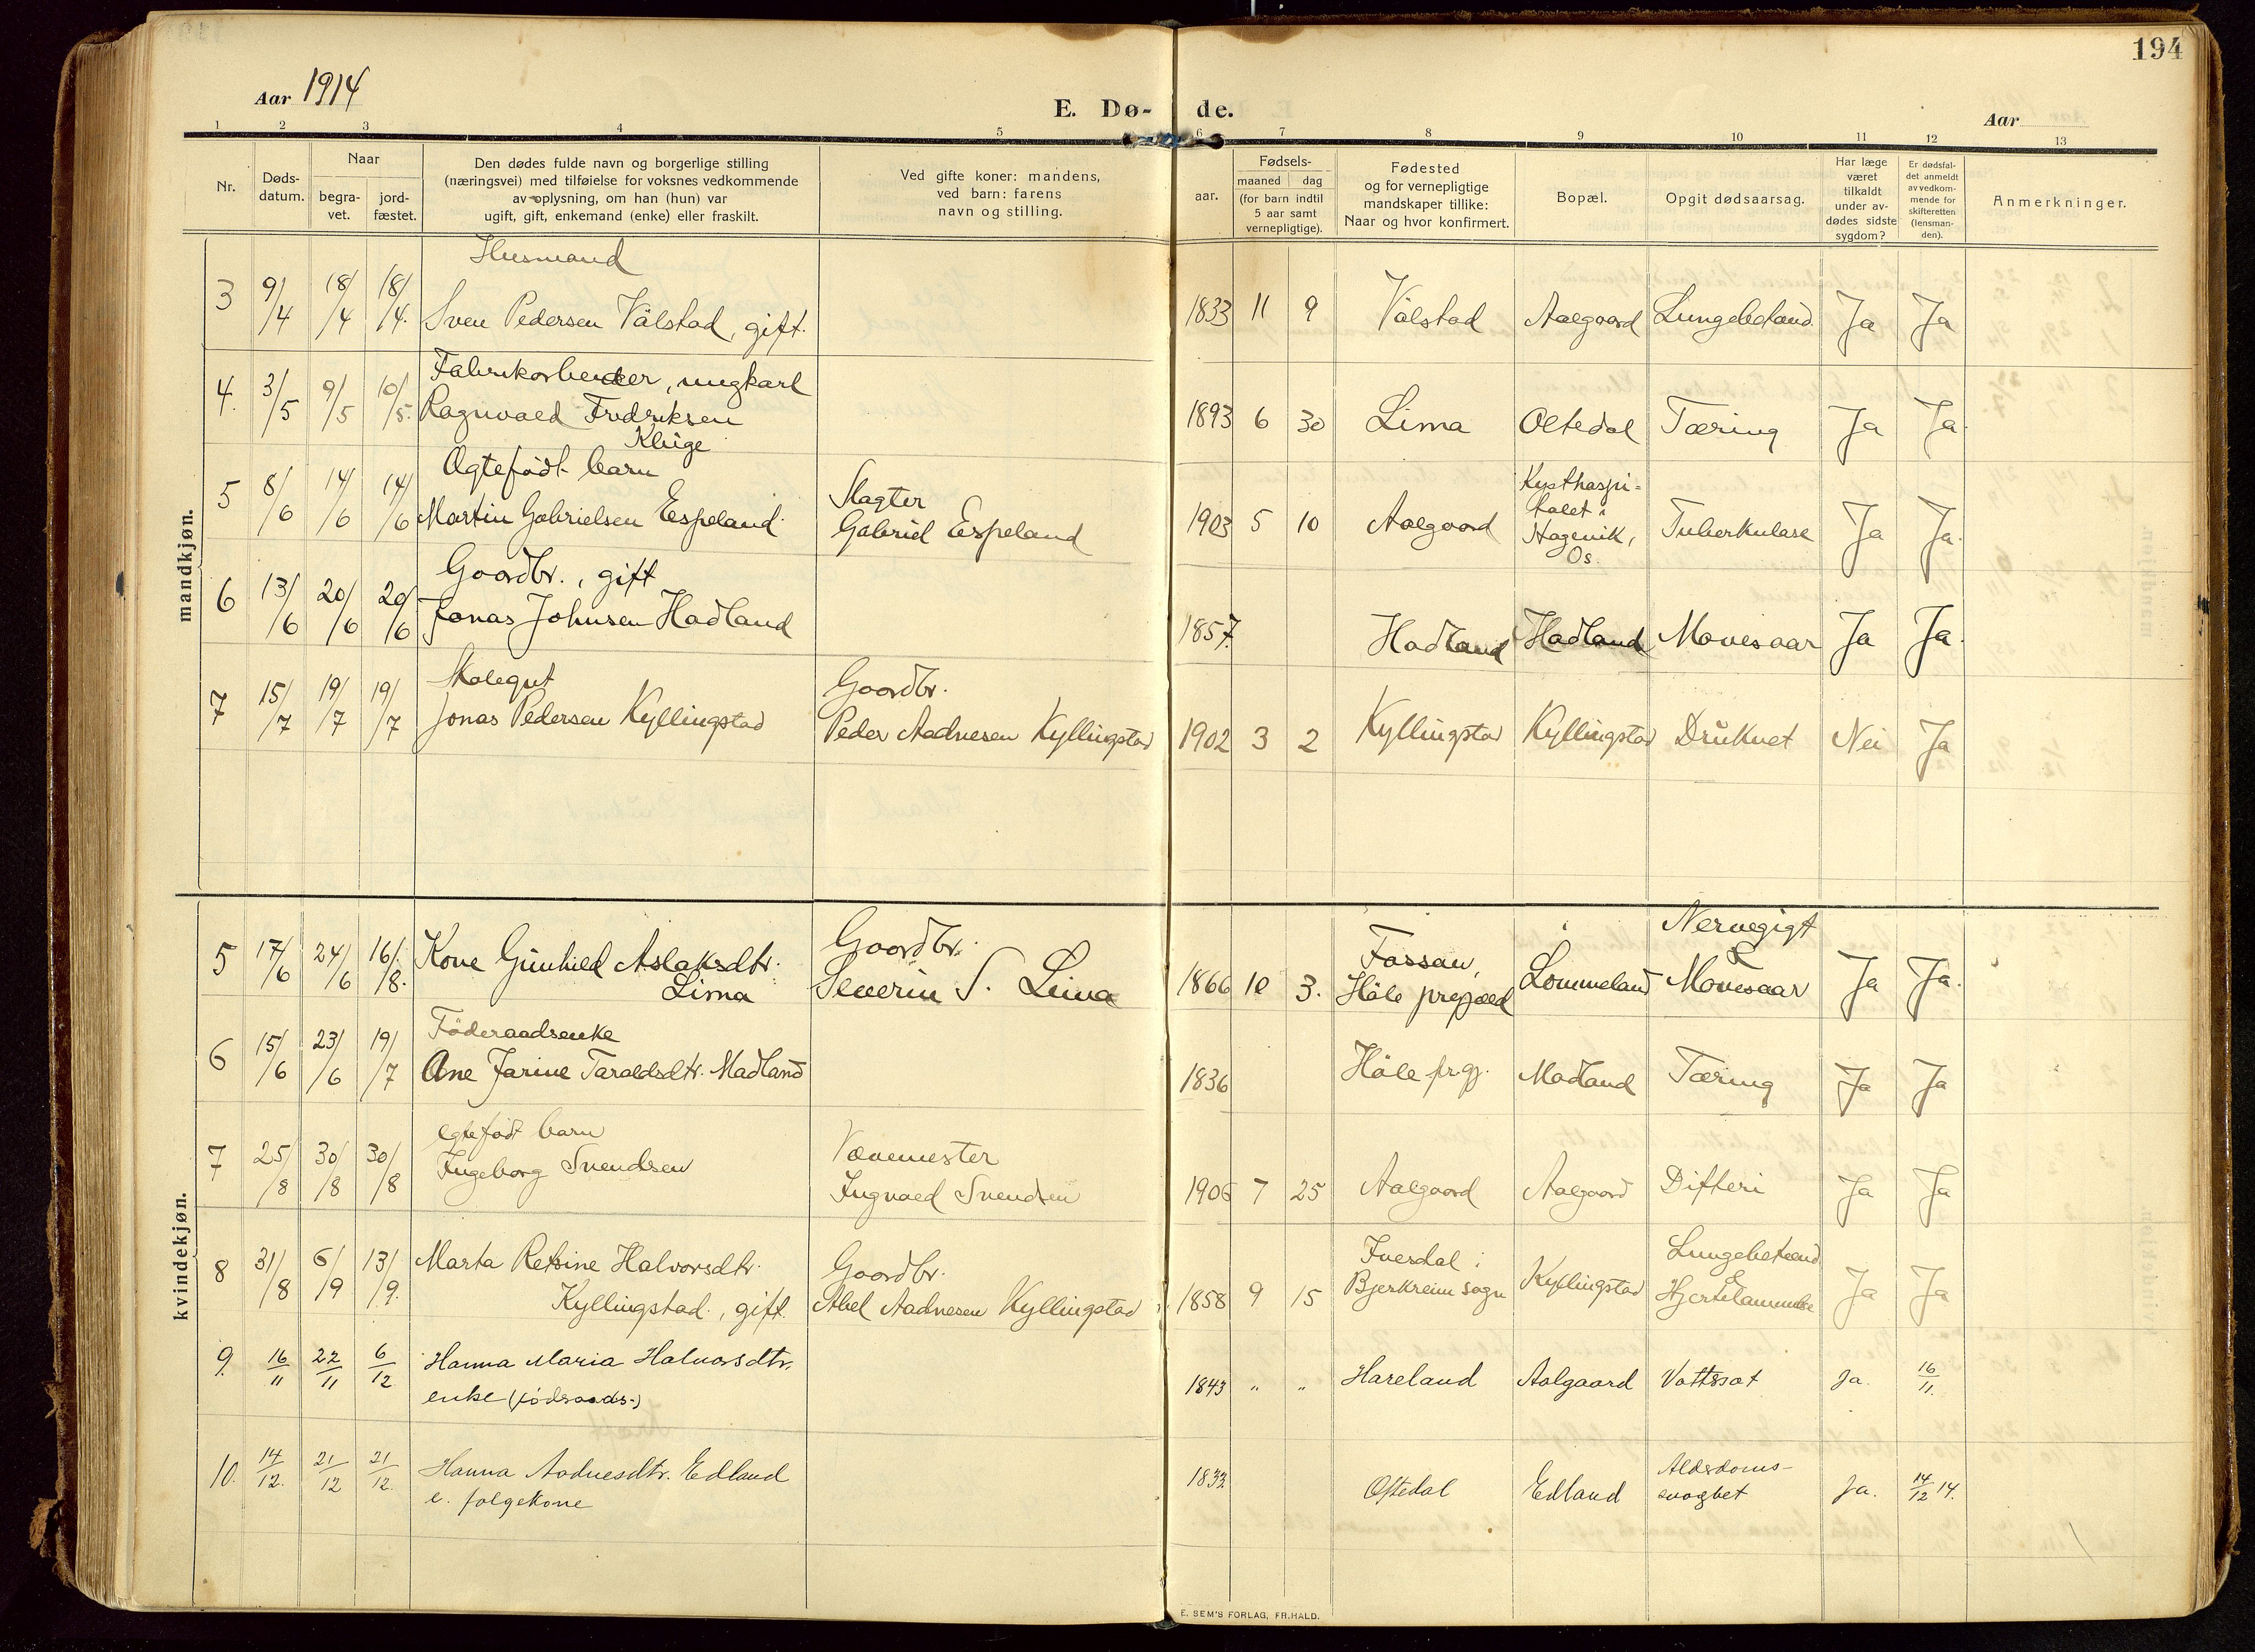 194
Aar 1914
E. Dø- de.
Aar
1 2 3 4 5 6 7 8 9 10 11 12 13
Nr.
Døds-
datum.
Naar
begra-
vet.
jord-
fæstet.
Den dødes fulde navn og borgerlige stilling
(næringsvei) med tilføielse for voksnes vedkommende
av oplysning, om han (hun) var
ugift, gift, enkemand (enke) eller fraskilt.
Ved gifte koner: mandens,
ved barn: farens
navn og stilling.
Fødsels-
aar.
maaned dag
(for barn indtil
5 aar samt
vernepligtige).
Fødested
og for vernepligtige
mandskaper tillike:
Naar og hvor konfirmert.
Bopæl.
Opgit dødsaarsag.
Har læge
været
tilkaldt
under av-
dødes sidste
sygdom?
Er dødsfal-
det anmeldt
av vedkom-
mende for
skifteretten
(lensman-
den).
Anmerkninger.
mandkjøn.
Husmand
3 9/4 18/4 18/4. Sven Pedersen Vålstad, gift. 1833 11 9 Vålstad Aalgaard Lungebetænd. Ja Ja
Fabrikarbeider, ungkarl
4. 3/5 9/5 10/5. Ragnvald Fredriksen 1893 6 30 Lima Oltedal Tæring Ja Ja.
Kluge
Ægtefødt barn
5 8/6 14/6 14/6 Martin Gabrielsen Espeland
Slagter
Gabriel Espeland
1903 5 10 Aalgaard
Kysthospi-
talet i
Hagevik,
Os.
Tuberkulose Ja Ja.
Gaardbr., gift
6 13/6 20/6 20/6 Jonas Johnsen Hadland 1857. Hadland Hadland Mavesaar Ja Ja.
Skolegut
7 15/7 19/7 19/7 Jonas Pedersen Kyllingstad
Gaardbr.
Peder Aadnesen Kyllingstad
1902 3 2 Kyllingstad Kyllingstad Druknet Nei Ja
kvindekjøn.
5 17/6 24/6 16/8. Kone Gunhild Aslaksdtr.
Lima
Gaardbr.
Severin S. Lima
1866 10 3.
Fossan,
Høle prgjæld
Lommeland
Nervegigt
&
Mavesaar
Ja Ja.
Føderaadsenke
6 15/6 23/6 19/7 Ane Jarine Taraldsdtr. Madland 1836 Høle prgj. Madland Tæring Ja Ja
egtefødt barn
7 25/8 30/8 30/8 Ingeborg Svendsen
Vævemester
Ingvald Svendsen
1906 7 25 Aalgaard Aalgaard Difteri Ja Ja
8 31/8 6/9 13/9. Marta Retsine Halvorsdtr.
Kyllingstad., gift.
Gaardbr.
Abel Aadnesen Kyllingstad
1858 9 15
Ivesdal i
Bjerkreim sogn
Kyllingstad
Lungebetænd
&
Hjertelammelse
Ja Ja
9. 16/11 22/11 6/12 Hanna Maria Halvorsdtr.
enke (fødraads-)
1843 " " Hareland Aalgaard Vattssot Ja. 16/11.
10. 14/12. 21/12 21/12. Hanna Aadnesdtr. Edland
e. folgekone
1833 Oftedal Edland
Alderdoms-
svaghet
Ja. 14/12 14.
E. SEM'S FORLAG, FR.HALD.